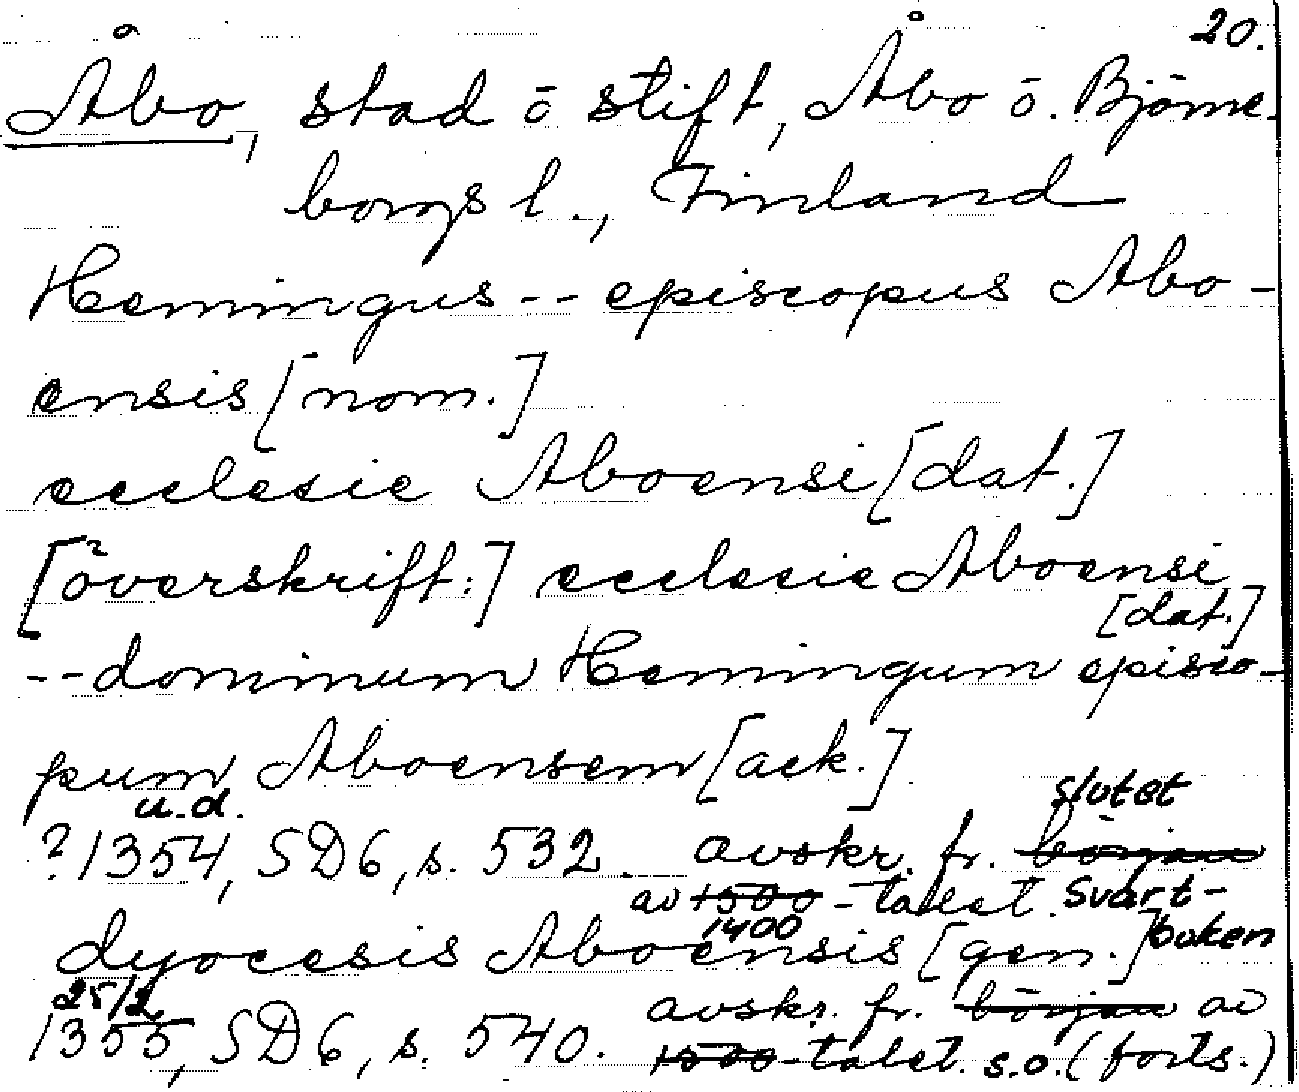 20.
Åbo, stad o stift, Åbo o. Björne-
borgs l., Finland
Hemingus -- episcopus Abo-
ensis [nom.]
ecclesie Aboensi [dat.]
[överskrift:] ecclesie Aboensi
[dat.]
-- dominum Hemingum episco-
pum Aboensem [ack.]
u.d. slutet
? 1354, SD 6, s. 532. avskr. fr. början
av 1500-talet. Svart-
1400 boken
dyocesis Aboensis [gen.]
25/2 avskr. fr. början av
1355, SD 6, s. 540. 1500-talet. s.o. (forts.)